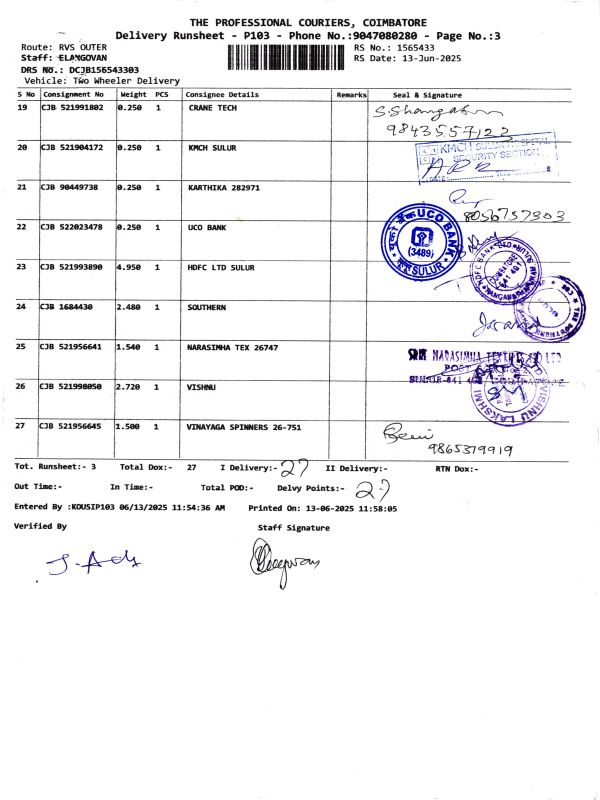 THE PROFESSIONAL COURIERS, COIMBATORE
Delivery Runsheet - P103 - Phone No.:9047080280 - Page No.:3
Route: RVS OUTER RS No.: 1565433
Staff: ELANGOVAN RS Date: 13-Jun-2025
DRS No.: DCJB156543303
Vehicle: Two Wheeler Delivery
S No Consignment No Weight PCS Consignee Details Remarks Seal & Signature
19 CJB 521991802 0.250 1 CRANE TECH
9843557122
20 CJB 521904172 0.250 1 KMCH SULUR KMCH SULUR HOSPITAL
SECURITY SECTION
21 CJB 90449738 0.250 1 KARTHIKA 282971
8056757303
22 CJB 522023478 0.250 1 UCO BANK यूको बैंक UCO BANK
(3489)
SULUR
23 CJB 521993890 4.950 1 HDFC LTD SULUR HDFC BANK
24 CJB 1684430 2.480 1 SOUTHERN
25 CJB 521956641 1.540 1 NARASIMHA TEX 26747 NARASIMHA
26 CJB 521998050 2.720 1 VISHNU VISHNU LAKSHMI
27 CJB 521956645 1.500 1 VINAYAGA SPINNERS 26-751
9865379919
Tot. Runsheet:- 3 Total Dox:- 27 I Delivery:- 27 II Delivery:- RTN Dox:-
Out Time:- In Time:- Total POD:- Delvy Points:- 27
Entered By :KOUSIP103 06/13/2025 11:54:36 AM Printed On: 13-06-2025 11:58:05
Verified By Staff Signature